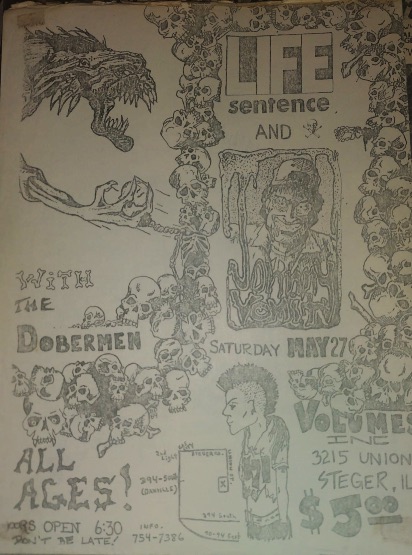 LIFE
sentence
AND
JOHNNY
VOMIT
WITH
THE
DOBERMEN
SATURDAY MAY 27
VOLUMES
INC
3215 UNION
STEGER, IL
$5.00
ALL
AGES!
DOORS OPEN 6:30
DON'T BE LATE!
INFO.
754-7386
294 South